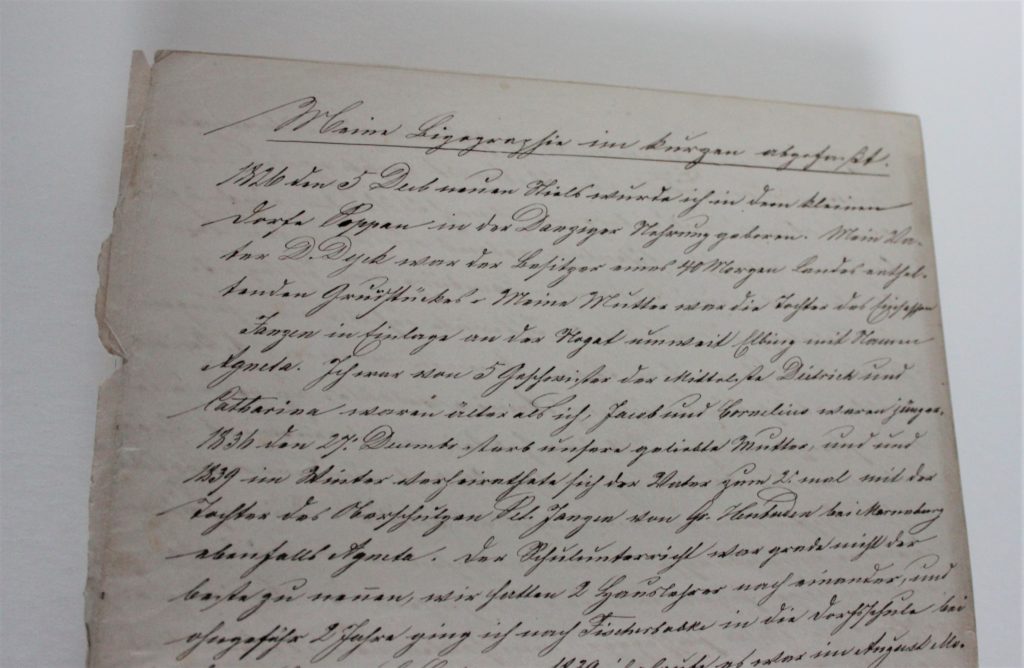 Meine Bigographie im kurzen abgefaßt.
1826 den 5 Decb neuen Stiels wurde ich in dem kleinen
Dorfe Poppau in der Danziger Nehrung geboren. Mein Va-
ter D. Dyck war der Besitzer eines 40 Morgen Landes enthal-
tenden Grundstückes. Meine Mutter war die Tochter des
Janzen in Einlage an der Nogat unweit Elbing mit Namen
Agneta. Ich war von 5 Geschwister der Mittelste Dietrich und
Catharina waren älter als ich, Jacob und Cornelius waren jünger.
1836 den 27. Decembr starb unsere geliebte Mutter, und und
1839 im Winter verheirathete sich der Vater zum 2. mal mit der
Tochter des Oberschulzen Pet. Janzen von gr. Heubuden bei Marienburg
ebenfalls Agneta. Der Schulunterricht war grade nicht der
beste zu nennen, wir hatten 2 Hauslehrer nach einander, und
ohngefähr 2 Jahre ging ich nach Fischerbabke in die Dorfsschule bei
1839 es war im August Mo-